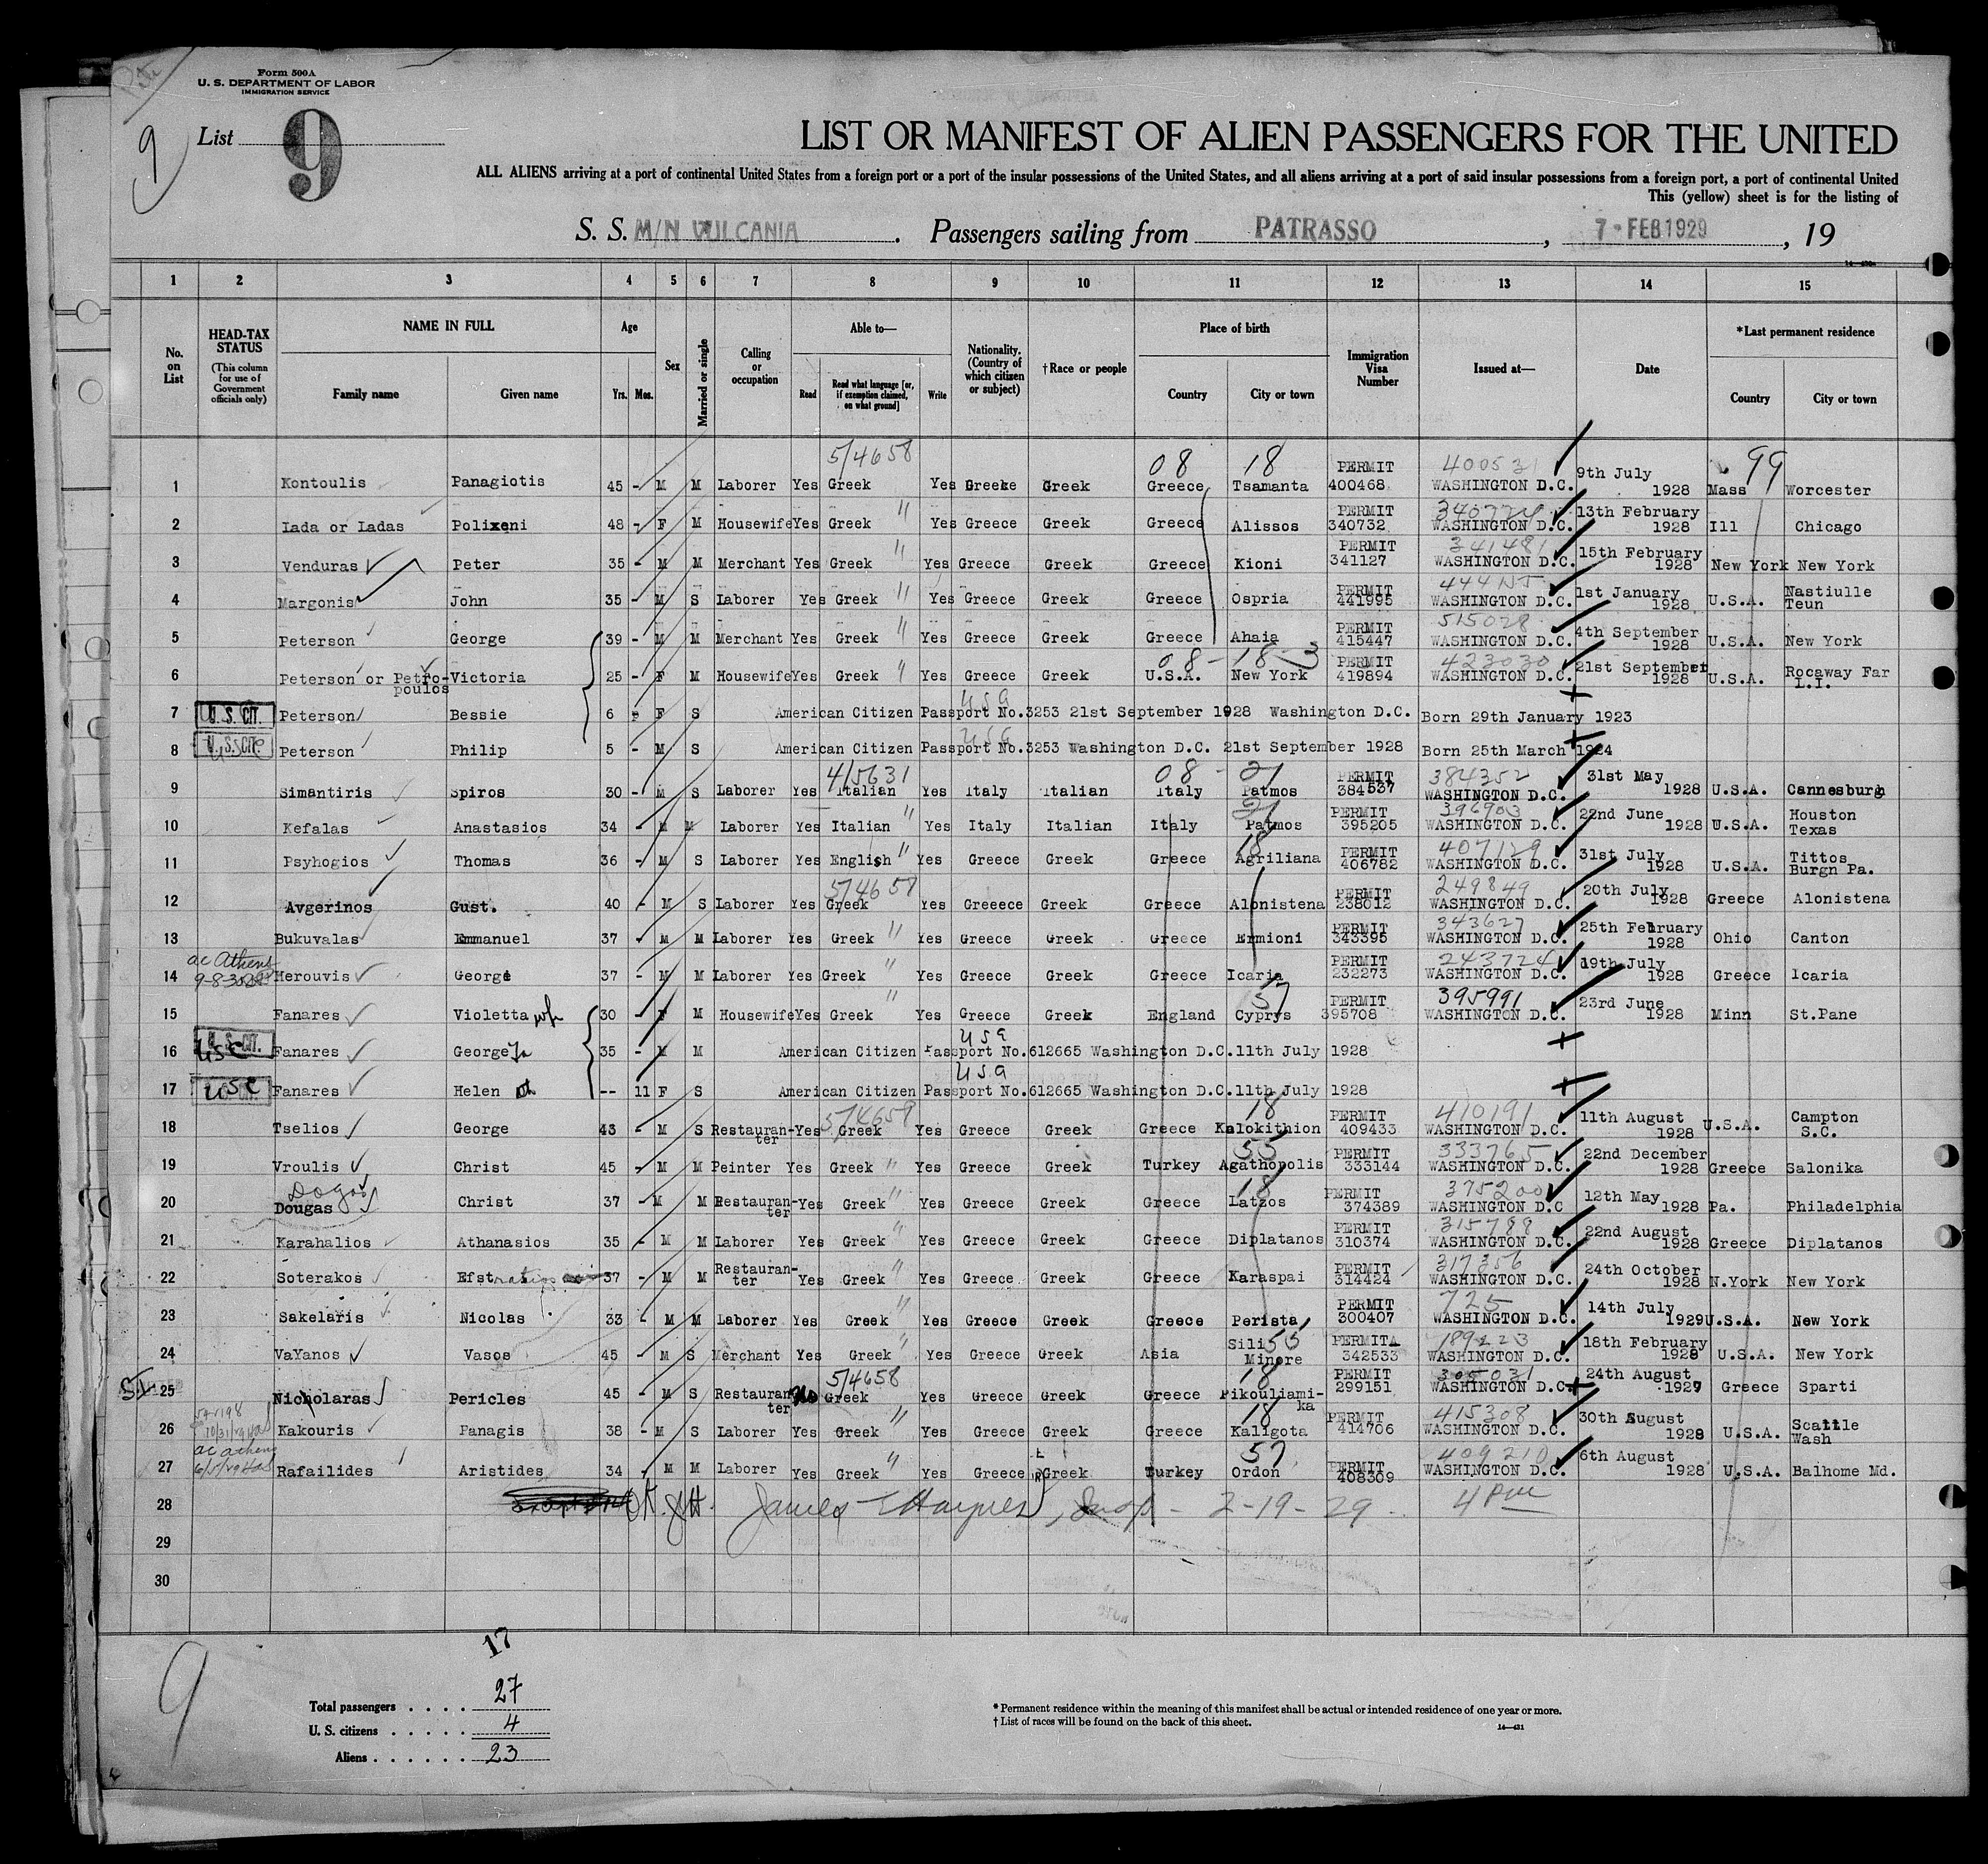 Form 500A
U. S. DEPARTMENT OF LABOR
IMMIGRATION SERVICE
9
List 9
LIST OR MANIFEST OF ALIEN PASSENGERS FOR THE UNITED
ALL ALIENS arriving at a port of continental United States from a foreign port or a port of the insular possessions of the United States, and all aliens arriving at a port of said insular possessions from a foreign port, a port of continental United
This (yellow) sheet is for the listing of
S. S. M/N VULCANIA. Passengers sailing from PATRASSO, 7-FEB 1929, 19
1 2 3 4 5 6 7 8 9 10 11 12 13 14 15
No. on List
HEAD-TAX STATUS (This column for use of Government officials only)
NAME IN FULL Family name Given name
Age Yrs. Mos.
Sex
Married or single
Calling or occupation
Able to— Read Read what language [or, if exemption claimed, on what ground] Write
Nationality. (Country of which citizen or subject)
†Race or people
Place of birth Country City or town
Immigration Visa Number
Issued at—
Date
*Last permanent residence Country City or town
5/4658 08 18 400531 99
1 Kontoulis Panagiotis 45 - M M Laborer Yes Greek Yes Greeke Greek Greece Tsamanta PERMIT 400468 WASHINGTON D.C. 9th July 1928 Mass Worcester
2 Lada or Ladas Polixeni 48 - F M Housewife Yes Greek " Yes Greece Greek Greece Alissos PERMIT 340732 WASHINGTON D.C. 13th February 1928 Ill Chicago
3 Venduras Peter 35 - M M Merchant Yes Greek " Yes Greece Greek Greece Kioni PERMIT 341127 341481 WASHINGTON D.C. 15th February 1928 New York New York
4 Margonis John 35 - M S Laborer Yes Greek " Yes Greece Greek Greece Ospria PERMIT 441995 WASHINGTON D.C. 1st January 1928 U.S.A. Nastiulle Teun
5 Peterson George 39 - M M Merchant Yes Greek " Yes Greece Greek Greece Ahaia PERMIT 415447 515028 WASHINGTON D.C. 4th September 1928 U.S.A. New York
08 - 18 - 3
6 Peterson or Petro-poulos Victoria 25 - F M Housewife Yes Greek " Yes Greece Greek U.S.A. New York PERMIT 419894 423030 WASHINGTON D.C. 21st September 1928 U.S.A. Rocaway Far L.I.
usa
7 U.S. CIT. Peterson Bessie 6 F S American Citizen Passport No.3253 21st September 1928 Washington D.C. Born 29th January 1923
usa
8 U.S. CIT. usc Peterson Philip 5 - M S American Citizen Passport No.3253 Washington D.C. 21st September 1928 Born 25th March 1924
4/5631 08 - 21
9 Simantiris Spiros 30 - M S Laborer Yes Italian Yes Italy Italian Italy Patmos PERMIT 384537 384352 WASHINGTON D.C. 31st May 1928 U.S.A. Cannesburgh
21
10 Kefalas Anastasios 34 - M M Laborer Yes Italian " Yes Italy Italian Italy Patmos PERMIT 395205 396903 WASHINGTON D.C. 22nd June 1928 U.S.A. Houston Texas
18
11 Psyhogios Thomas 36 - M S Laborer Yes English " Yes Greece Greek Greece Agriliana PERMIT 406782 407129 WASHINGTON D.C. 31st July 1928 U.S.A. Tittos Burgn Pa.
5/4657
12 Avgerinos Gust. 40 - M S Laborer Yes Greek Yes Greeece Greek Greece Alonistena PERMIT 238012 249849 WASHINGTON D.C. 20th July 1928 Greece Alonistena
13 Bukuvalas Emmanuel 37 - M M Laborer Yes Greek " Yes Greece Greek Greece Ermioni PERMIT 343395 343627 WASHINGTON D.C. 25th February 1928 Ohio Canton
ac Athens
14 Merouvis George 37 - M M Laborer Yes Greek " Yes Greece Greek Greece Icaria PERMIT 232273 243724 WASHINGTON D.C. 19th July 1928 Greece Icaria
57
15 Fanares Violetta wf 30 - F M Housewife Yes Greek " Yes Greece Greek England Cyprys PERMIT 395708 395991 WASHINGTON D.C. 23rd June 1928 Minn St.Pane
usa
16 U.S. CIT. usc Fanares George 35 - M M American Citizen Passport No.612665 Washington D.C.11th July 1928
usa
17 usc Fanares Helen -- 11 F S American Citizen Passport No.612665 Washington D.C.11th July 1928
5/4659 18
18 Tselios George 43 - M S Restauran-ter Yes Greek Yes Greece Greek Greece Kalokithion PERMIT 409433 410191 WASHINGTON D.C. 11th August 1928 U.S.A. Campton S.C.
55
19 Vroulis Christ 45 - M M Peinter Yes Greek " Yes Greece Greek Turkey Agathopolis PERMIT 333144 333765 WASHINGTON D.C. 22nd December 1928 Greece Salonika
Dogas 18
20 Dougas Christ 37 - M M Restauran-ter Yes Greek " Yes Greece Greek Greece Latzos PERMIT 374389 375200 WASHINGTON D.C 12th May 1928 Pa. Philadelphia
21 Karahalios Athanasios 35 - M M Laborer Yes Greek " Yes Greece Greek Greece Diplatanos PERMIT 310374 315788 WASHINGTON D.C. 22nd August 1928 Greece Diplatanos
22 Soterakos Efstratios 37 - M M Restauran-ter Yes Greek " Yes Greece Greek Greece Karaspai PERMIT 314424 317356 WASHINGTON D.C. 24th October 1928 N.York New York
23 Sakelaris Nicolas 33 - M M Laborer Yes Greek " Yes Greece Greek Greece Perista PERMIT 300407 725 WASHINGTON D.C. 14th July 1929 U.S.A. New York
24 VaYanos Vasos 45 - M S Merchant Yes Greek " Yes Greece Greek Asia Sili Minore 55 PERMIT 342533 189223 WASHINGTON D.C. 18th February 1928 U.S.A. New York
5/4658 18
SI 25 Nicholaras Pericles 45 - M S Restauran-ter No Greek Yes Greece Greek Greece Pikouliami-ka PERMIT 299151 305031 WASHINGTON D.C. 24th August 1927 Greece Sparti
18
26 Kakouris Panagis 38 - M S Laborer Yes Greek " Yes Greece Greek Greece Kaligota PERMIT 414706 415308 WASHINGTON D.C. 30th August 1928 U.S.A. Scattle Wash
ac athens 57
27 Rafailides Aristides 34 - M M Laborer Yes Greek " Yes Greece Greek Turkey Ordon PERMIT 408309 409210 WASHINGTON D.C. 6th August 1928 U.S.A. Balhome Md.
28 OK JH. James T Haynes, Insp - 2-19-29 4 Pm
29
30
17
9
Total passengers . . . . 27
U. S. citizens . . . . . 4
Aliens . . . . . . 23
* Permanent residence within the meaning of this manifest shall be actual or intended residence of one year or more.
† List of races will be found on the back of this sheet.
14—431